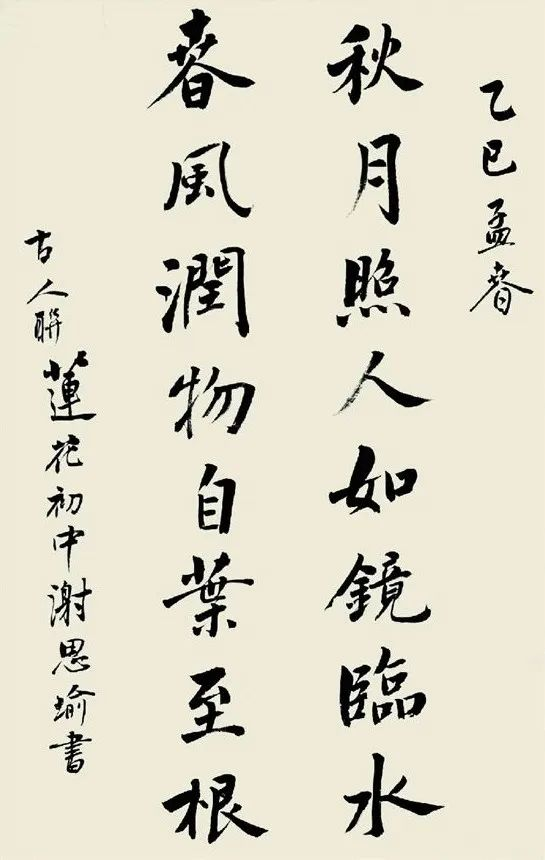 乙巳孟春
秋月照人如鏡臨水
春風潤物自葉至根
古人聯蓮花初中謝思瑜書